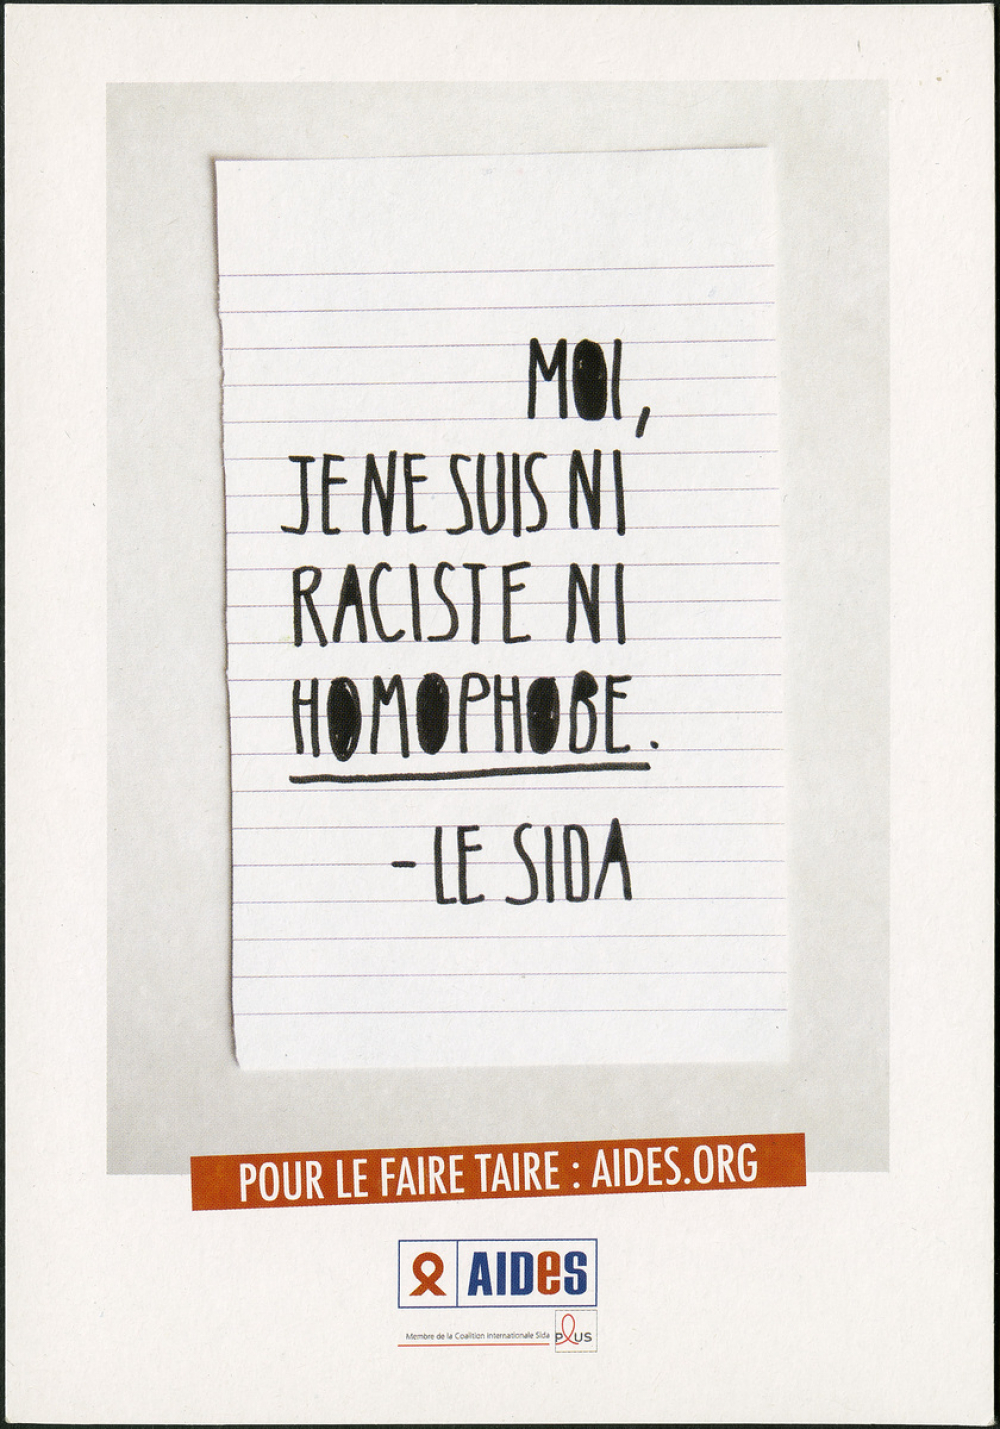 MOI,
JE NE SUIS NI
RACISTE NI
HOMOPHOBE.
- LE SIDA
POUR LE FAIRE TAIRE : AIDES.ORG
AIDeS
Membre de la Coalition Internationale Sida PLUS